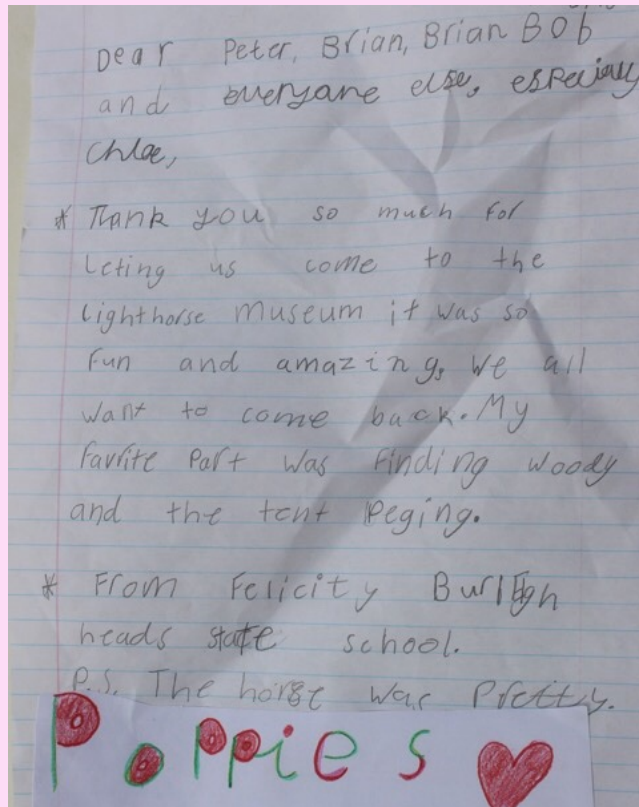 Dear Peter, Brian, Brian Bob
and everyane else, especially
Chloe,
* Thank you so much for
leting us come to the
lighthorse museum it was so
fun and amazing, we all
want to come back. My
favrite part was finding woody
and the tent peging.
* From Felicity Burleigh
heads state school.
P.S. The horse was pretty.
Poppies